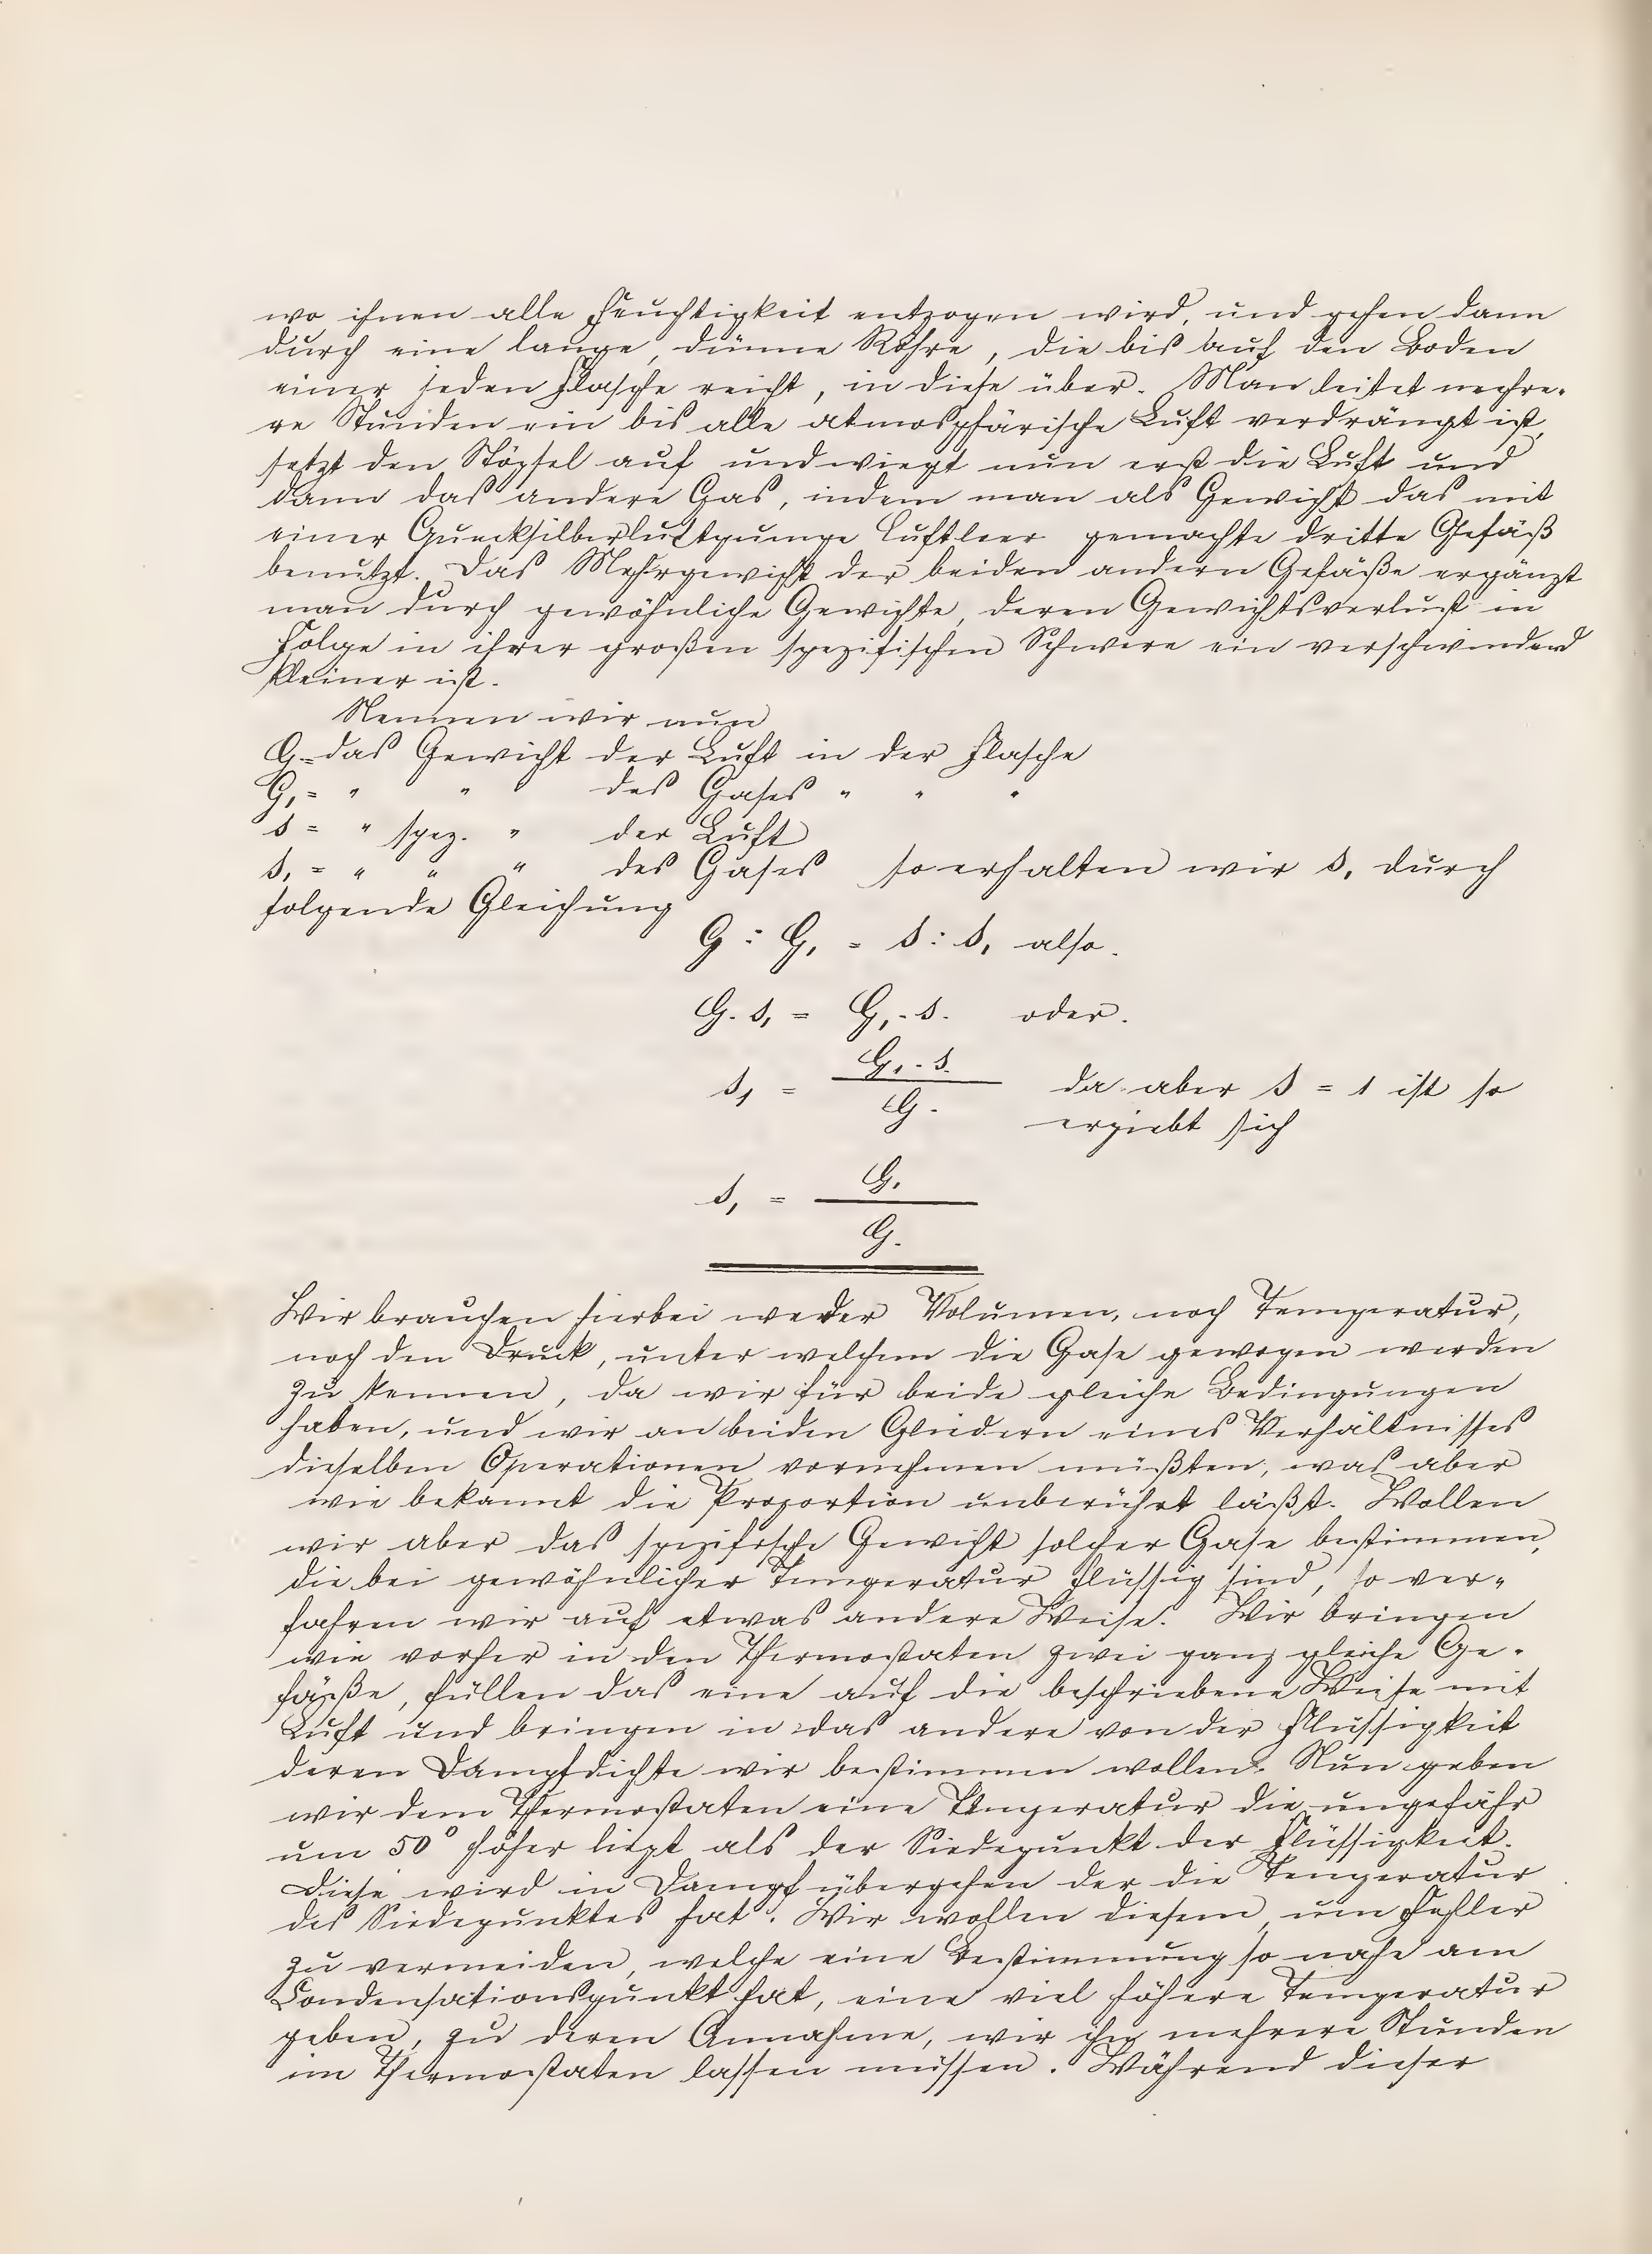 wo ihnen alle Feuchtigkeit entzogen wird, und gehen dann
durch eine lange, dünne Röhre, die bis auf den Boden
einer jeden Flasche reicht, in diese über. Man leitet mehre-
re Stunden ein bis alle atmosphärische Luft verdrängt ist,
setzt den Stöpsel auf und wiegt nun erst die Luft und
dann das andere Gas, indem man als Gewicht das mit
einer Quecksilberluftpumpe luftleer gemachte dritte Gefäß
benutzt. Das Mehrgewicht der beiden andern Gefäße ergänzt
man durch gewöhnliche Gewichte, deren Gewichtsverlust in
Folge in ihrer großen spezifischen Schwere ein verschwindend
kleiner ist.
Nennen wir nun
G = das Gewicht der Luft in der Flasche
G, = " " des Gases " " "
s = " spez. " der Luft
s, = " " " des Gases so erhalten wir s, durch
folgende Gleichung
G : G, = s : s, also.
G. s, = G, . s. oder.
s, = G, . s. / G. da aber s = 1 ist so
ergiebt sich
s, = G, / G.
Wir brauchen hierbei weder Volumen, noch Temperatur,
noch den Druck, unter welchem die Gase gewogen werden
zu kennen, da wir für beide gleiche Bedingungen
haben, und wir an beiden Gliedern eines Verhältnisses
dieselben Operationen vornehmen müßten, was aber
wie bekannt die Proportion unberührt läßt. Wollen
wir aber das spezifische Gewicht solcher Gase bestimmen,
die bei gewöhnlicher Temperatur flüssig sind, so ver-
fahren wir auf etwas andere Weise. Wir bringen
wie vorher in den Thermostaten zwei ganz gleiche Ge-
fäße, füllen das eine auf die beschriebene Weise mit
Luft und bringen in das andere von der Flüssigkeit
deren Dampfdichte wir bestimmen wollen. Nun geben
wir dem Thermostaten eine Temperatur die ungefähr
um 50° höher liegt als der Siedepunkt der Flüssigkeit.
Diese wird in Dampf übergehen der die Temperatur
des Siedepunktes hat. Wir wollen diesem, um Fehler
zu vermeiden, welche eine Bestimmung so nahe am
Condensationspunkt hat, eine viel höhere Temperatur
geben, zu deren Annahme, wir ihn mehrere Stunden
im Thermostaten lassen müssen. Während dieser